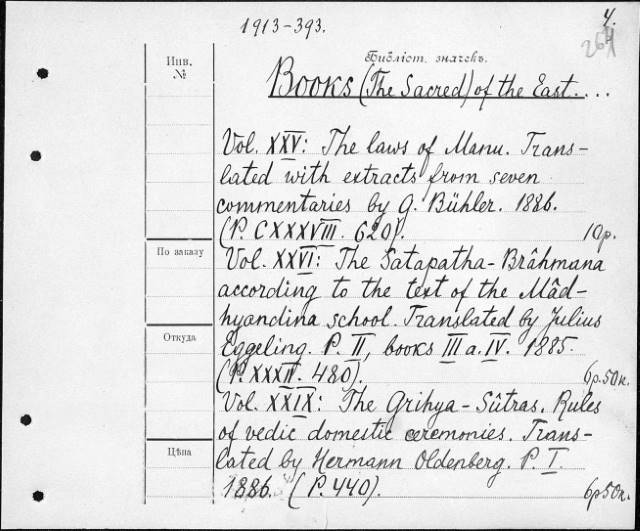 1913-393.
4.
264
Инв.
№
Библіот. значекъ.
Books (The Sacred) of the East....
Vol. XXV: The laws of Manu. Trans-
lated with extracts from seven
commentaries by G. Bühler. 1886.
(P. CXXXVIII. 620). 10р.
По заказу
Vol. XXVI: The Satapatha-Brâhmana
according to the text of the Mâd-
hyandina school. Translated by Julius
Откуда
Eggeling. P. II, books III a. IV. 1885.
(P. XXXII. 480). 6р.50к.
Vol. XXIX: The Grihya-Sûtras. Rules
of vedic domestic ceremonies. Trans-
Цѣна
lated by Hermann Oldenberg. P. I.
1886. (P. 440). 6р50к.